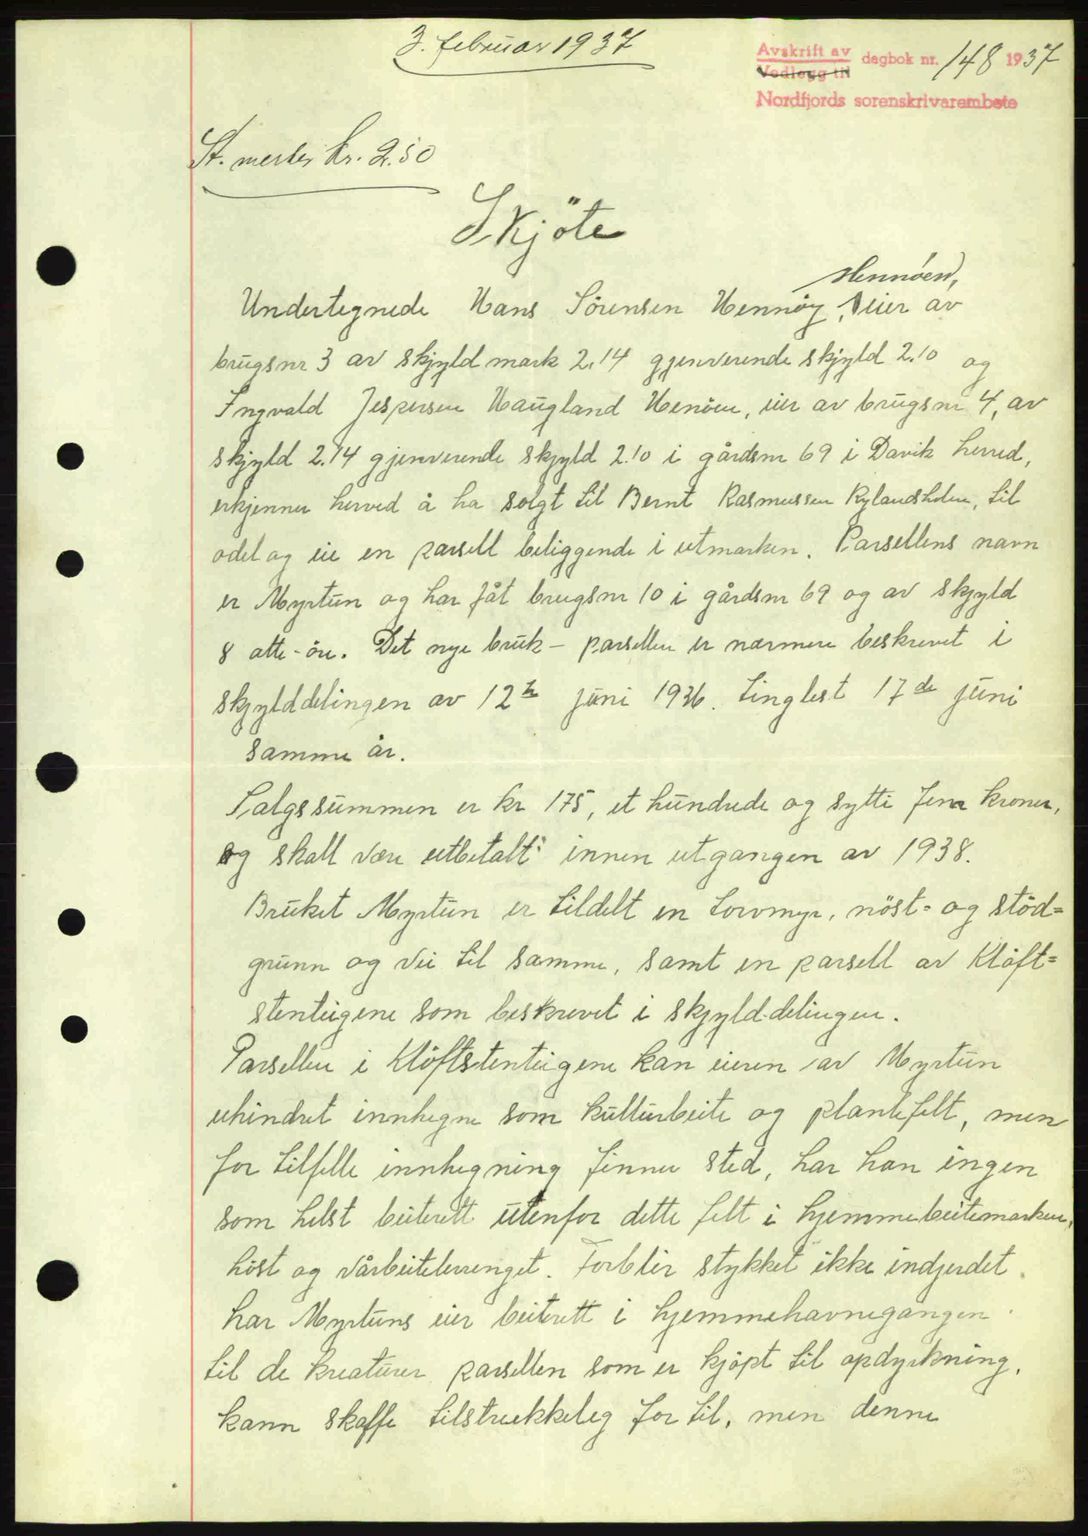 3. februar 1937
Avskrift av
Vedlegg til
dagbok nr. 148 1937
Nordfjords sorenskrivarembete
St. merker kr. 2.50
Skjöte
Hennöen,
Undertegnede Hans Sörensen Hennöy, eier av
brugsnr 3 av skjyld mark 2.14 gjenverende skjyld 2.10 og
Ingvald Jespersen Haugland Henöen, eier av brugsnr 4, av
skjyld 2.14 gjenverende skjyld 2.10 i gårdsnr 69 i Davik herred,
erkjenner herved å ha solgt til Bernt Rasmussen Rylandsholm, til
odel og eie en parsell beliggende i utmarken. Parsellens navn
er Myrtun og har fåt brugsnr 10 i gårdsnr 69 og av skjyld
8 otte-öre. Det nye bruk - parsellen er nærmere beskrevet i
skjylddelingen av 12te juni 1936. tinglest 17de juni
samme år.
Salgssummen er kr 175, et hundrede og sytti fem kroner,
og skall være utbetalt innen utgangen av 1938.
Bruket Myrtun er tildelt en torvmyr, nöst= og stöd=
grunn og vei til samme, samt en parsell av Klöft=
stenteigene som beskrevet i skjyld-delingen.
Parsellen i Klöftstenteigene kan eieren av Myrtun
uhindret innhegne som kulturbeite og plantefelt, men
for tilfelle innhegning finner sted, har han ingen
som helst beiterett utenfor dette felt i hjemmebeitemarken,
höst og vårbeiteterrenget. Forblir stykket ikke indjerdet
har Myrtuns eier beiterett i hjemmehavnegangen
til de kreaturer parsellen som er kjöpt til opdyrkning,
kann skaffe tilstrekkeleg for til, men denne